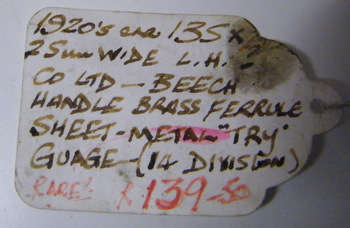 1920's car 135 x
25mm WIDE L.H.
CO LTD - BEECH
HANDLE BRASS FERRULE
SHEET - METAL "TRY"
GUAGE - (14 DIVISION)
RARE £139-50